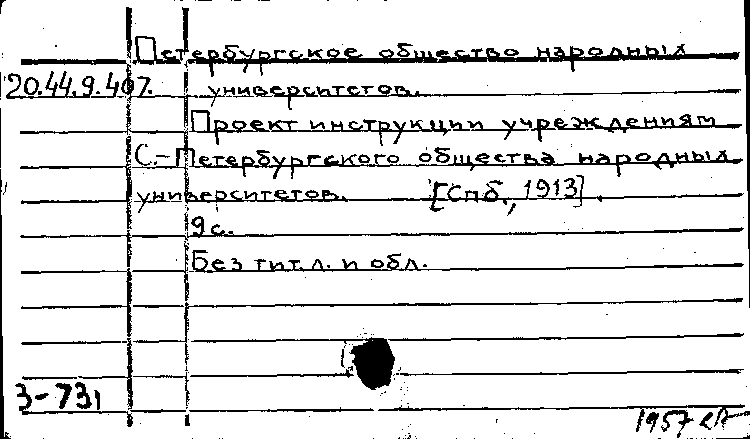 Петербургское общество народных
20.44.9.407. университетов.
Проект инструкции учреждениям
С.-Петербургского общества народных
университетов. [Спб., 1913].
9 с.
Без тит. л. и обл.
3-731
1957